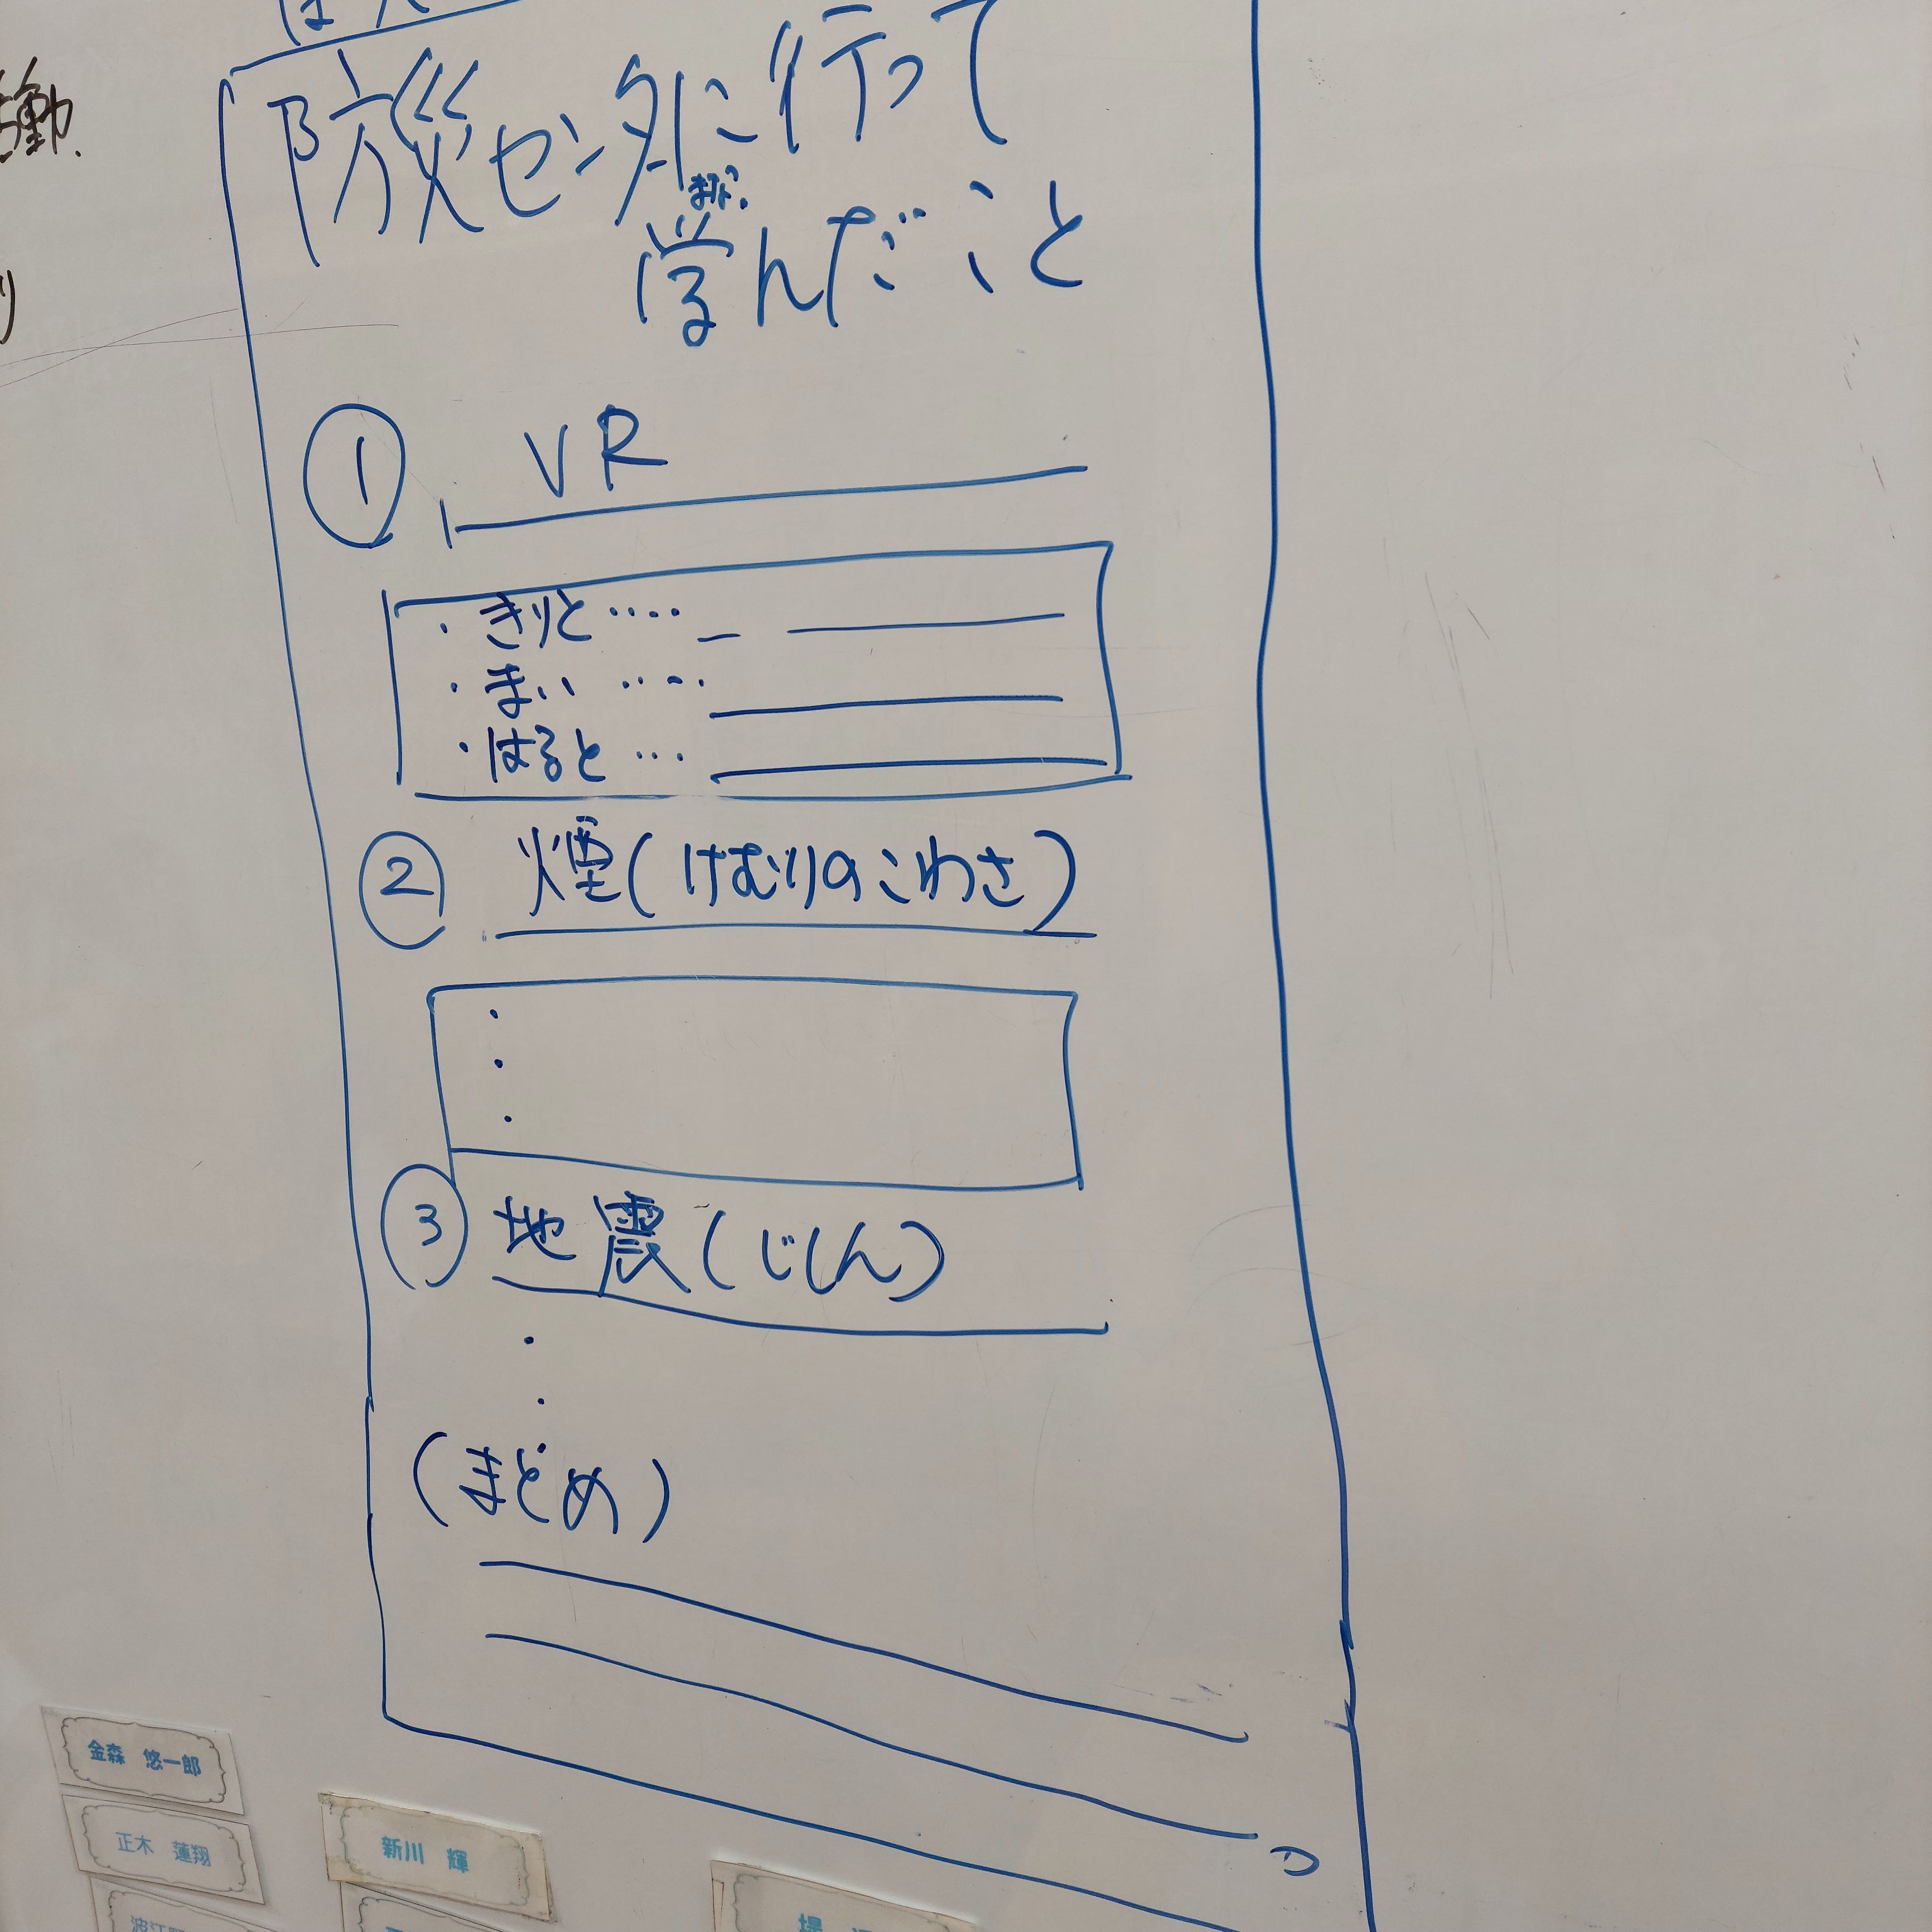 防災センターに行って
まな
学んだこと
① VR
・きりと‥‥
・まい ‥‥
・はると …
② 煙(けむりのこわさ)
・
・
・
③ 地震(じしん)
・
・
・
(まとめ)
金森 悠一郎
正木 蓮翔
新川 輝